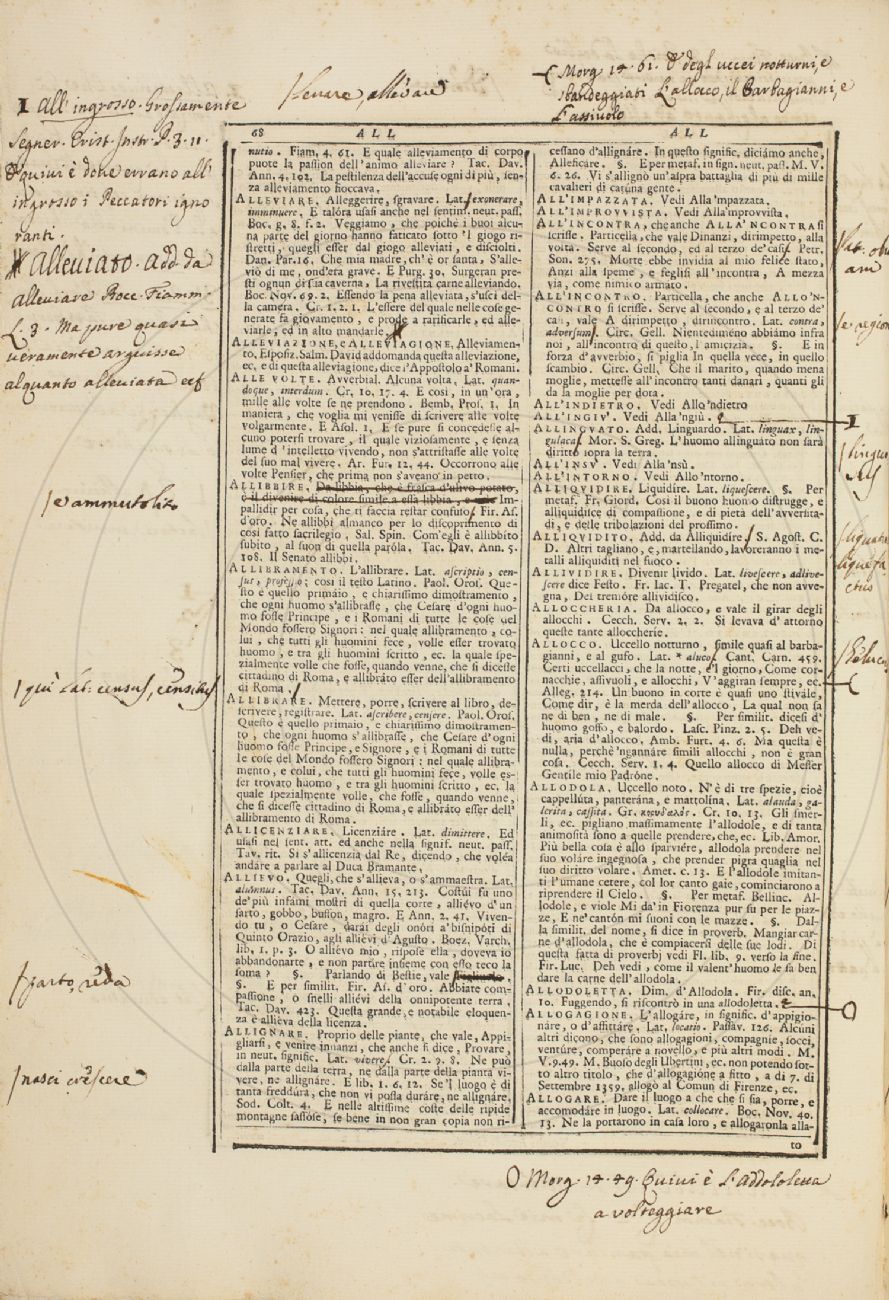 Morg 14. 61. & degl' uccei notturni, e
sbandeggiati L'allocco, il Barbagianni, e
L'assiuolo
levare, allevare
all'ingrosso. Grossamente
Segner. Crist. Instr. P. 3. 11.
& quivi è dove errano all'
ingrosso i Peccatori igno
ranti.
Alleviato. add. da
alleviare Bocc. Fiamm.
L. 3. Ma pure quasi
veramente
alquanto alleviata ecc
e ammutolir
qui Lat. census, censitus
parto, reda
nasci crescere
68 ALL
nutio. Fiam. 4. 61. E quale alleviamento di corpo
puote la passion dell'animo alleviare? Tac. Dav.
Ann. 4. 102. La pestilenza dell'accuse ogni dì più, sen-
za alleviamento fioccava.
ALLEVIARE. Alleggerire, sgravare. Lat. exonerare,
imminuere. E talóra usasi anche nel sentim. neut. pass.
Boc. g. 8. f. 2. Veggiamo, che poichè i buoi alcu-
na parte del giorno hanno faticato sotto 'l giogo ri-
stretti, quegli esser dal giogo alleviati, e disciolti.
Dan. Par. 16. Che mia madre, ch'è or santa, S'alle-
viò di me, ond'era grave. E Purg. 30. Surgeran pre-
sti ognun di sua caverna, La rivestita carne alleviando.
Boc. Nov. 69. 2. Essendo la pena alleviata, s'uscì del-
la camera. Cr. 1. 2. 1. L'essere del quale nelle cose ge-
nerate fa giovamento, e prode a rarificarle, ed alle-
viarle, ed in alto mandarle.
ALLEVIAZIONE, e ALLEVIAGIONE. Alleviamen-
to, Esposiz. Salm. David addomanda questa alleviazione,
ec. e di questa alleviagione, dice l'Appostolo a' Romani.
ALLE VOLTE. Avverbial. Alcuna volta. Lat. quan-
doque, interdum. Cr. 10. 17. 4. E così, in un'ora,
mille alle volte se ne prendono. Bemb. Pros. 1. In
maniera, che voglia mi venisse di scrivere alle volte
volgarmente. E Asol. 1. E se pure si concedesse al-
cuno potersi trovare, il quale viziosamente, e senza
lume d'intelletto vivendo, non s'attristasse alle volte
del suo mal vivere. Ar. Fur. 12. 44. Occorrono alle
volte Pensier, che prima non s'aveano in petto.
ALLIBBIRE. Da libbia, che è frasca d'ulivo potato,
e il divenire di colore simile a essa libbia, e Im-
pallidir per cosa, che ti faccia restar confuso. Fir. As.
d'oro. Ne allibbì almanco per lo discoprimento di
così fatto sacrilegio, Sal. Spin. Com'egli è allibbito
subito, al suon di questa paróla. Tac. Dav. Ann. 5.
108. Il Senato allibbì.
ALLIBRAMENTO. L'allibrare. Lat. ascriptio, cen-
sus, professio; così il testo Latino. Paol. Oros. Que-
sto è quello primaio, e chiarissimo dimostramento,
che ogni huomo s'allibrasse, che Cesare d'ogni huo-
mo fosse Principe, e i Romani di tutte le cose del
Mondo fossero Signori: nel quale allibramento, co-
lui, che tutti gli huomini fece, volle esser trovato
huomo, e tra gli huomini scritto, ec. la quale spe-
zialmente volle che fosse, quando venne, che si dicesse
cittadino di Roma, e allibráto esser dell'allibramento
di Roma.
ALLIBRARE. Mettere, porre, scrivere al libro, de-
scrivere, registrare. Lat. ascribere, censere. Paol. Oros.
Questo è quello primaio, e chiarissimo dimostramen-
to, che ogni huomo s'allibrasse, che Cesare d'ogni
huomo fosse Principe, e Signore, e i Romani di tutte
le cose del Mondo fossero Signori: nel quale allibra-
mento, e colui, che tutti gli huomini fece, volle es-
ser trovato huomo, e tra gli huomini scritto, ec. la
quale spezialmente volle, che fosse, quando venne,
che si dicesse cittadino di Roma, e allibráto esser dell'
allibramento di Roma.
ALLICENZIARE. Licenziáre. Lat. dimittere. Ed
usasi nel sent. att. ed anche nella signif. neut. pass.
Tav. rit. Si s'allicenzia dal Re, dicendo, che voléa
andáre a parlare al Duca Bramante.
ALLIEVO. Quegli, che s'allieva, o s'ammaestra. Lat.
alumnus. Tac. Dav. Ann. 15. 213. Costúi fu uno
de' più infami mostri di quella corte, alliévo d'un
sarto, gobbo, buffon, magro. E Ann. 2. 41. Viven-
do tu, o Cesare, darái degli onóri a' bisnipóti di
Quinto Orazio, agli alliévi d'Agusto. Boez. Varch.
lib. 1. p. 3. O alliévo mio, rispose ella, doveva io
abbandonarte, e non partire insieme con esso teco la
soma? §. Parlando di Bestie, vale
§. E per similit. Fir. As. d'oro. Abbiate com-
passione, o snelli alliévi della onnipotente terra.
Tac. Dav. 423. Questa grande, e notabile eloquen-
za è allieva della licenza.
ALLIGNARE. Proprio delle piante, che vale, Appi-
gliarsi, e venire innanzi, che anche si dice, Provare,
in neut. signific. Lat. vivere. Cr. 2. 9. 8. Ne può
dalla parte della terra, ne dalla parte della pianta vi-
vere, ne allignáre. E lib. 1. 6. 12. Se 'l luogo è di
tanta freddúra, che non vi possa duráre, ne allignáre.
Sod. Colt. 4. E nelle altissime coste delle ripide
montagne sassóse, se bene in non gran copia non ri-
ALL
cessano d'allignáre. In questo signific. diciámo anche,
Alleficáre. §. E per metaf. in sign. neut. pass. M. V.
6. 26. Vi s'allignò un'aspra battaglia di più di mille
cavalieri di catúna gente.
ALL'IMPAZZATA. Vedi Alla 'mpazzata.
ALL'IMPROVVISTA. Vedi Alla'mprovvista.
ALL'INCONTRA, che anche ALLA'NCONTRA si
scrisse. Particella, che vale Dinanzi, dirimpetto, alla
volta. Serve al secondo, ed al terzo de' casi. Petr.
Son. 275. Morte ebbe invidia al mio felice stato,
Anzi alla speme, e feglisi all'incontra, A mezza
via, come nimico armato.
ALL'INCONTRO. Particella, che anche ALLO 'N-
CONTRO si scrisse. Serve al secondo, e al terzo de'
casi, vale A dirimpetto, dirincontro. Lat. contra,
adversum. Circ. Gell. Nientedimeno abbiámo infra
noi, all'incontro di questo, l'amicizia. §. E in
forza d'avverbio, si piglia In quella vece, in quello
scambio. Circ. Gell. Che il marito, quando mena
moglie, mettesse all'incontro tanti danari, quanti gli
dà la moglie per dota.
ALL'INDIETRO. Vedi Allo'ndietro
ALL'INGIU'. Vedi Alla 'ngiù.
ALLINGUATO. Add. Linguardo. Lat. linguax, lin-
gulaca. Mor. S. Greg. L'huomo allinguáto non sarà
diritto sopra la terra.
ALL'INSU'. Vedi Alla 'nsù.
ALL'INTORNO. Vedi Allo 'ntorno.
ALLIQUIDIRE. Liquidire. Lat. liquescere. §. Per
metaf. Fr. Giord. Così il buono huomo si distrugge, e
alliquidisce di compassione, e di pietà dell'avversita-
di, e delle tribolazioni del prossimo.
ALLIQUIDITO. Add. da Alliquidire. S. Agost. C.
D. Altri tagliano, e, martellando, lavoreranno i me-
talli alliquiditi nel fuoco.
ALLIVIDIRE. Divenir livido. Lat. livescere, adlive-
scere dice Festo. Fr. Iac. T. Pregatel, che non avve-
gna, Dei tremóre allividisco.
ALLOCCHERIA. Da allocco, e vale il girar degli
allocchi. Cecch. Serv. 2. 2. Si levava d'attorno
queste tante alloccherie.
ALLOCCO. Uccello notturno, simile quasi al barba-
gianni, e al gufo. Lat. * aluco. Cant. Carn. 459.
Certi uccellacci che la notte, e 'l giorno, Come cor-
nacchie, assivuoli, e allocchi, V'aggiran sempre, ec.
Alleg. 214. Un buono in corte è quasi uno stivále,
Come dir, è la merda dell'allocco, La qual non sa
ne di ben, ne di male. §. Per similit. dicesi d'
huomo goffo, e balordo. Lasc. Pinz. 2. 5. Deh ve-
di, aria d'allocco. Amb. Furt. 4. 6. Ma questa è
nulla, perchè 'ngannáre simili allocchi, non è gran
cosa. Cecch. Serv. 1. 4. Quello allocco di Messer
Gentile mio Padróne.
ALLODOLA. Uccello noto. N'è di tre spezie, cioè
cappellúta, panterána, e mattolina. Lat. alauda, ga-
lerita, cassita. Gr. Cr. 10. 13. Gli smer-
li, ec. pigliano massimamente l'allodole, e di tanta
animosità sono a quelle prendere, che, ec. Lib. Amor.
Più bella cosa è asso sparviére, allodola prendere nel
suo voláre ingegnosa, che prender pigra quaglia nel
suo diritto volare. Amet. c. 13. E l'allodole imitan-
ti l'umane cetere, col lor canto gaie, cominciarono a
riprendere il Cielo. §. Per metaf. Bellinc. Al-
lodole, e viole Mi da'in Fiorenza pur su per le piaz-
ze, E ne'cantón mi suoni con le mazze. §. Dal-
la similit. del nome, si dice in proverb. Mangiar car-
ne d'allodola, che è compiacersi delle sue lodi. Di
questa fatta di proverbj vedi Fl. lib. 9. verso la fine.
Fir. Luc. Deh vedi, come il valent'huomo le sa ben
dare la carne dell'allodola.
ALLODOLETTA. Dim. d'Allodola. Fir. disc. an.
10. Fuggendo, si riscontrò in una allodoletta.
ALLOGAGIONE. L'allogáre, in signific. d'appigio-
náre, o d'affittáre. Lat. locatio. Passav. 126. Alcúni
altri dicono, che sono allogagioni, compagnie, socci,
ventúre, comperáre a novello, e più altri modi. M.
V. 9. 49. M. Buoso degli Ubertini, ec. non potendo sot-
to altro titolo, che d'allogagióne a fitto, a dì 7. di
Settembre 1359. allogò al Comun di Firenze, ec.
ALLOGARE. Dare il luogo a che che si sia, porre, e
accomodáre in luogo. Lat. collocare. Boc. Nov. 40.
13. Ne la portarono in casa loro, e allogaronla alla-
to
O Morg. 14. 49. Quivi è L'addoletta
a volteggiare